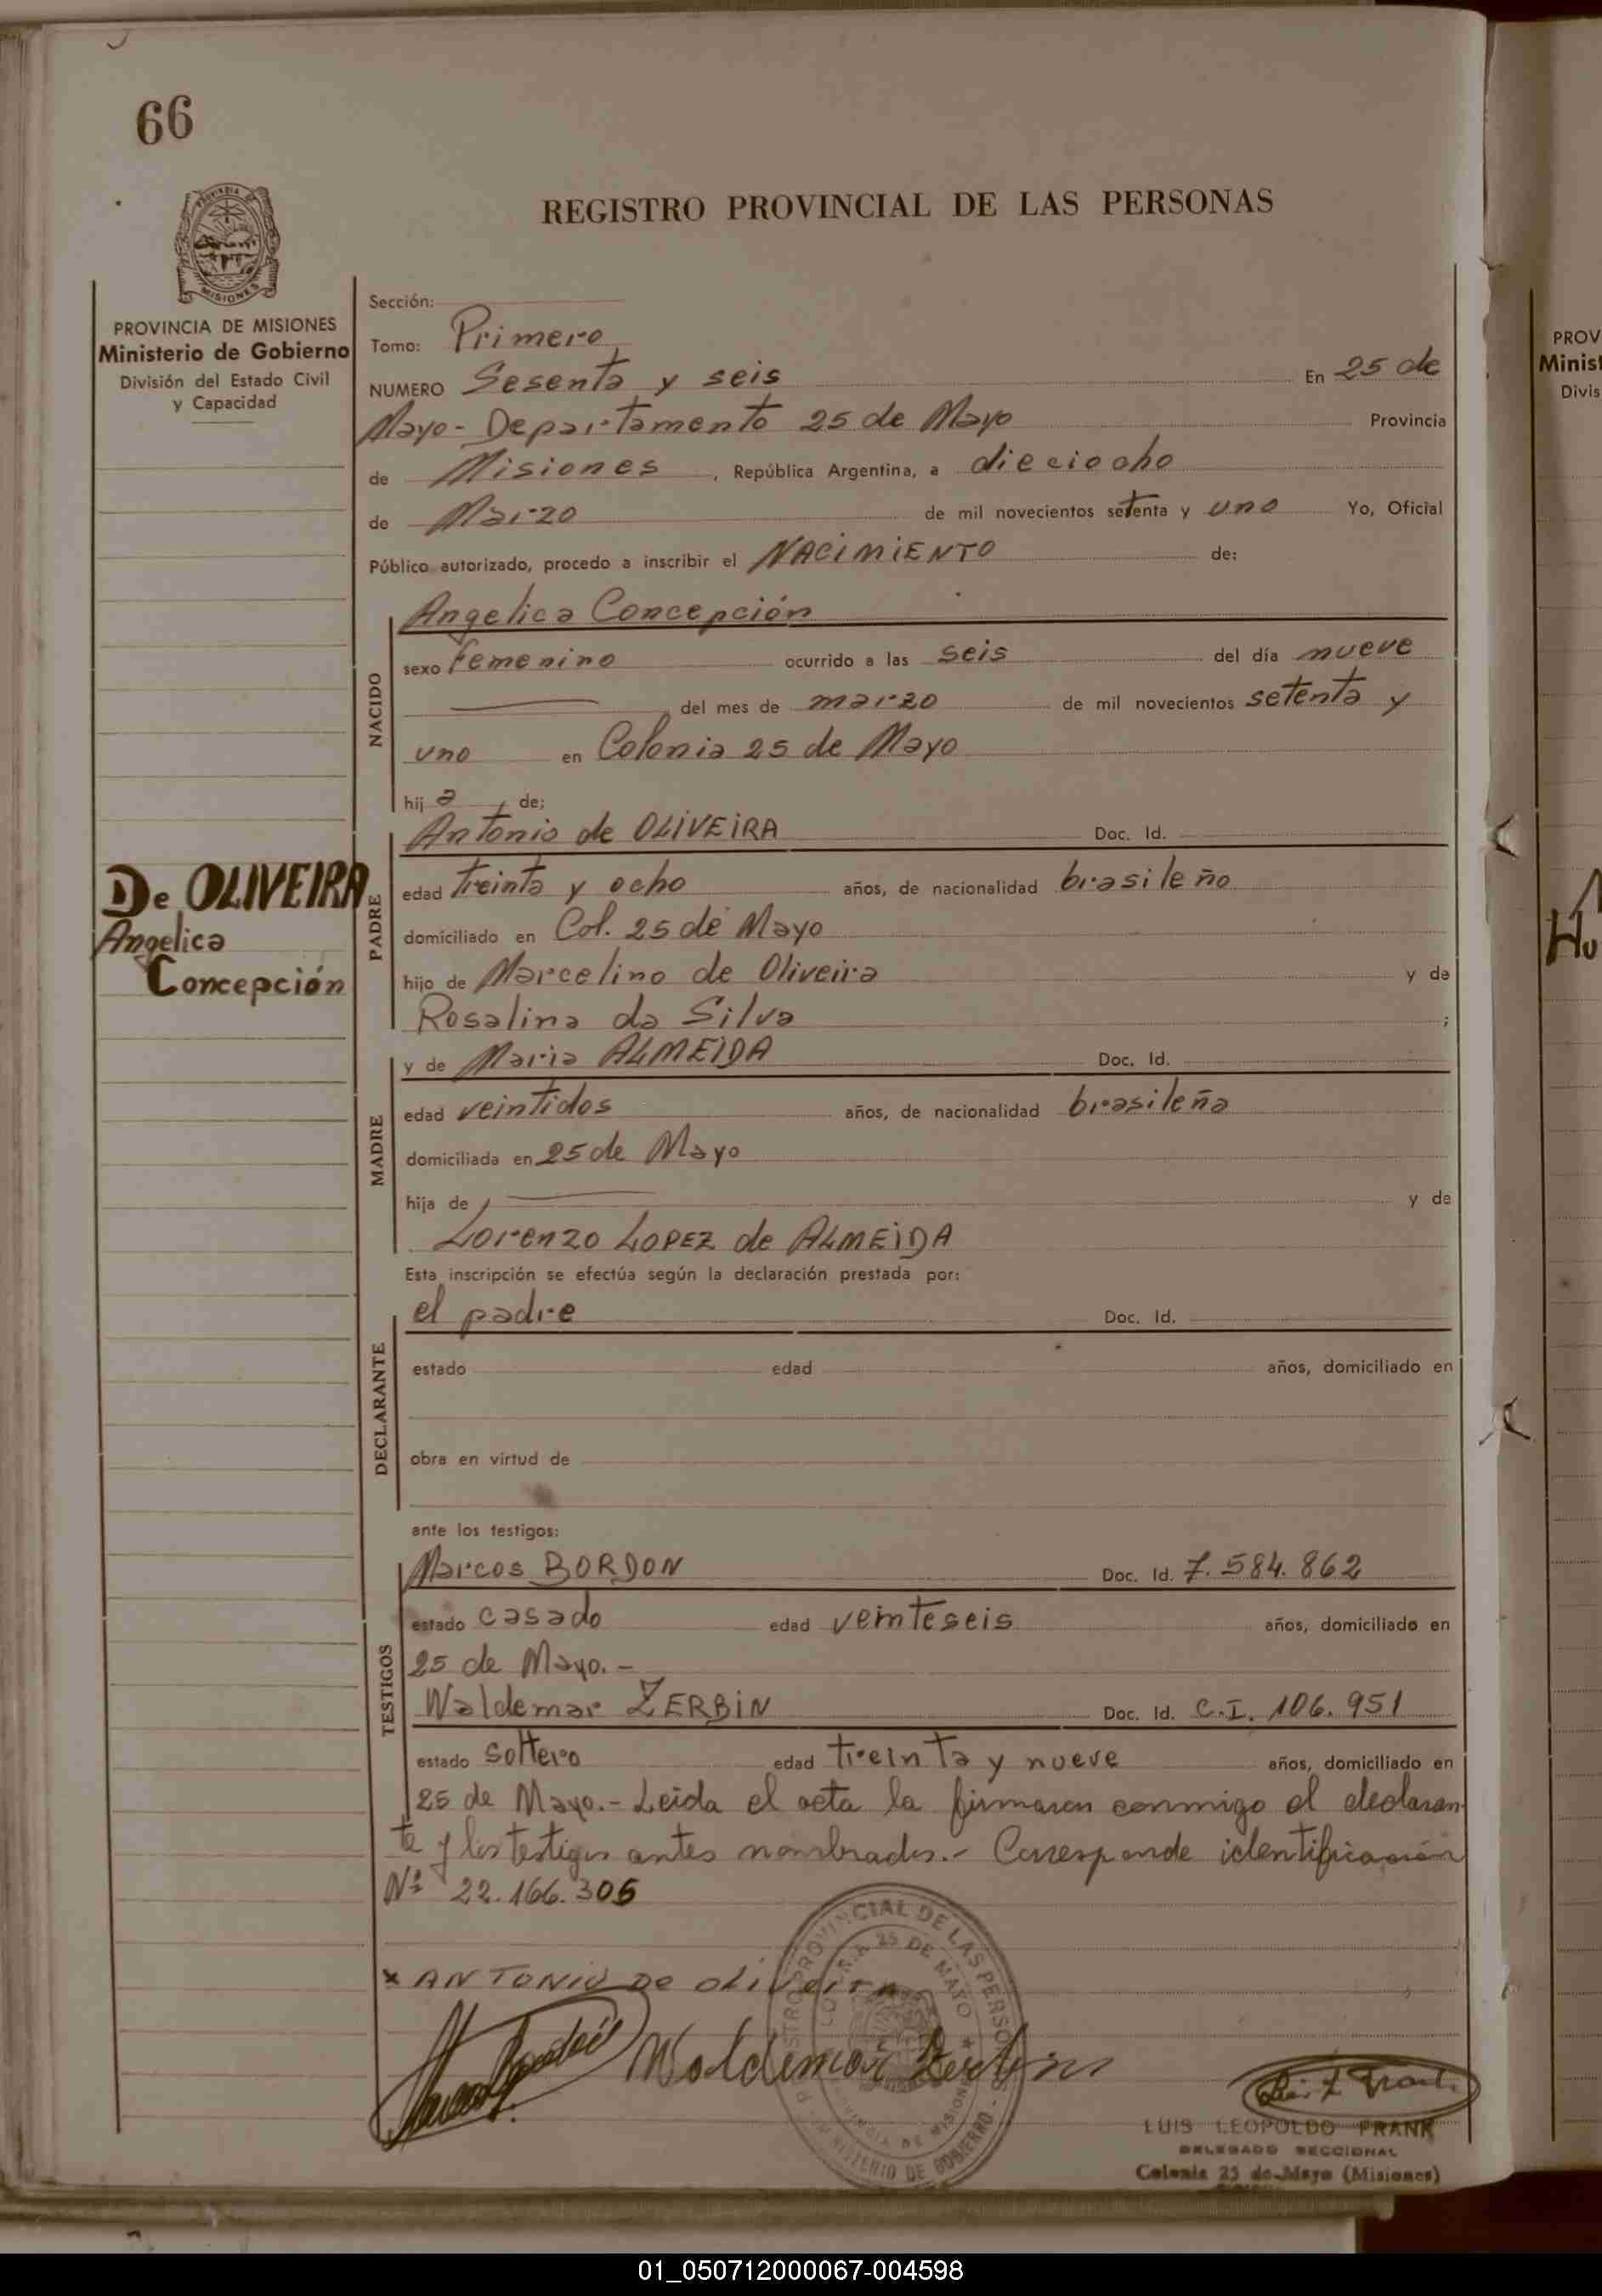 66
REGISTRO PROVINCIAL DE LAS PERSONAS
MISIONES
PROVINCIA DE MISIONES
Ministerio de Gobierno
División del Estado Civil
y Capacidad
Sección:
Tomo: Primero
NUMERO Sesenta y seis En 25 de
Mayo - Departamento 25 de Mayo Provincia
de Misiones, República Argentina, a dieciocho
de Marzo de mil novecientos setenta y uno Yo, Oficial
Público autorizado, procedo a inscribir el NACIMIENTO de:
NACIDO
Angelica Concepción
sexo Femenino ocurrido a las seis del día nueve
del mes de marzo de mil novecientos setenta y
uno en Colonia 25 de Mayo
hija, de;
De OLIVEIRA
Angelica
Concepción
PADRE
Antonio de OLIVEIRA Doc. Id.
edad treinta y ocho años, de nacionalidad brasileño
domiciliado en Col. 25 de Mayo
hijo de Marcelino de Oliveira y de
Rosalina da Silva ;
MADRE
y de Maria ALMEIDA Doc. Id.
edad veintidos años, de nacionalidad brasileña
domiciliada en 25 de Mayo
hija de y de
Lorenzo LOPEZ de ALMEIDA
Esta inscripción se efectúa según la declaración prestada por:
DECLARANTE
el padre Doc. Id.
estado edad años, domiciliado en
obra en virtud de
ante los testigos:
TESTIGOS
Marcos BORDON Doc. Id. 7.584.862
estado casado edad veinteseis años, domiciliado en
25 de Mayo.-
Waldemar ZERBIN Doc. Id. C.I. 106.951
estado soltero edad treinta y nueve años, domiciliado en
25 de Mayo.- Leida el acta la firmaron conmigo el declaran-
te y los testigos antes nombrados.- Corresponde identificación
Nº 22.166.305
x ANTONIO De oliveira
Waldemar Zerbin
LUIS LEOPOLDO FRANK
DELEGADO SECCIONAL
Colonia 25 de Mayo (Misiones)
PROV
Minist
Divis
Hu
01_050712000067-004598